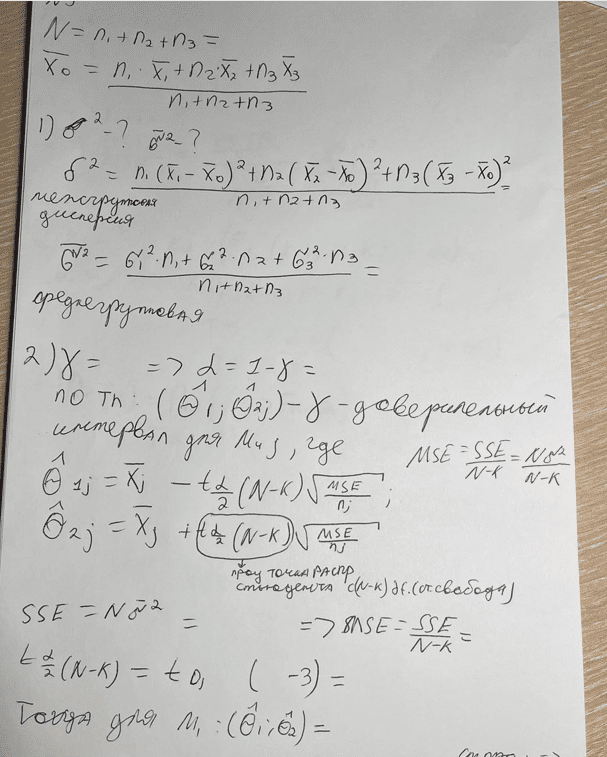 N = n₁ + n₂ + n₃ =
x̄₀ = (n₁ · x̄₁ + n₂ · x̄₂ + n₃ x̄₃) / (n₁ + n₂ + n₃)
1) δ² - ? σ̄² - ?
δ² = (n₁(x̄₁ - x̄₀)² + n₂(x̄₂ - x̄₀)² + n₃(x̄₃ - x̄₀)²) / (n₁ + n₂ + n₃) =
межгрупповая
дисперсия
σ̄² = (σ₁² · n₁ + σ₂² · n₂ + σ₃² · n₃) / (n₁ + n₂ + n₃) =
среднегрупповая
2) γ = => α = 1 - γ =
по Th: (θ̂₁ⱼ; θ̂₂ⱼ) - γ - доверительный
интервал для μⱼ, где
MSE = SSE / (N-K) = Nσ̄² / (N-K)
θ̂₁ⱼ = x̄ⱼ - t α/2 (N-K) √(MSE / nⱼ) ;
θ̂₂ⱼ = x̄ⱼ + t α/2 (N-K) √(MSE / nⱼ)
проц точка распр
стьюдента с (N-K) df. (ст свободы)
SSE = Nσ̄² = => MSE = SSE / (N-K) =
t α/2 (N-K) = t 0, ( -3) =
Тогда для μ₁ : (θ̂₁; θ̂₂) =